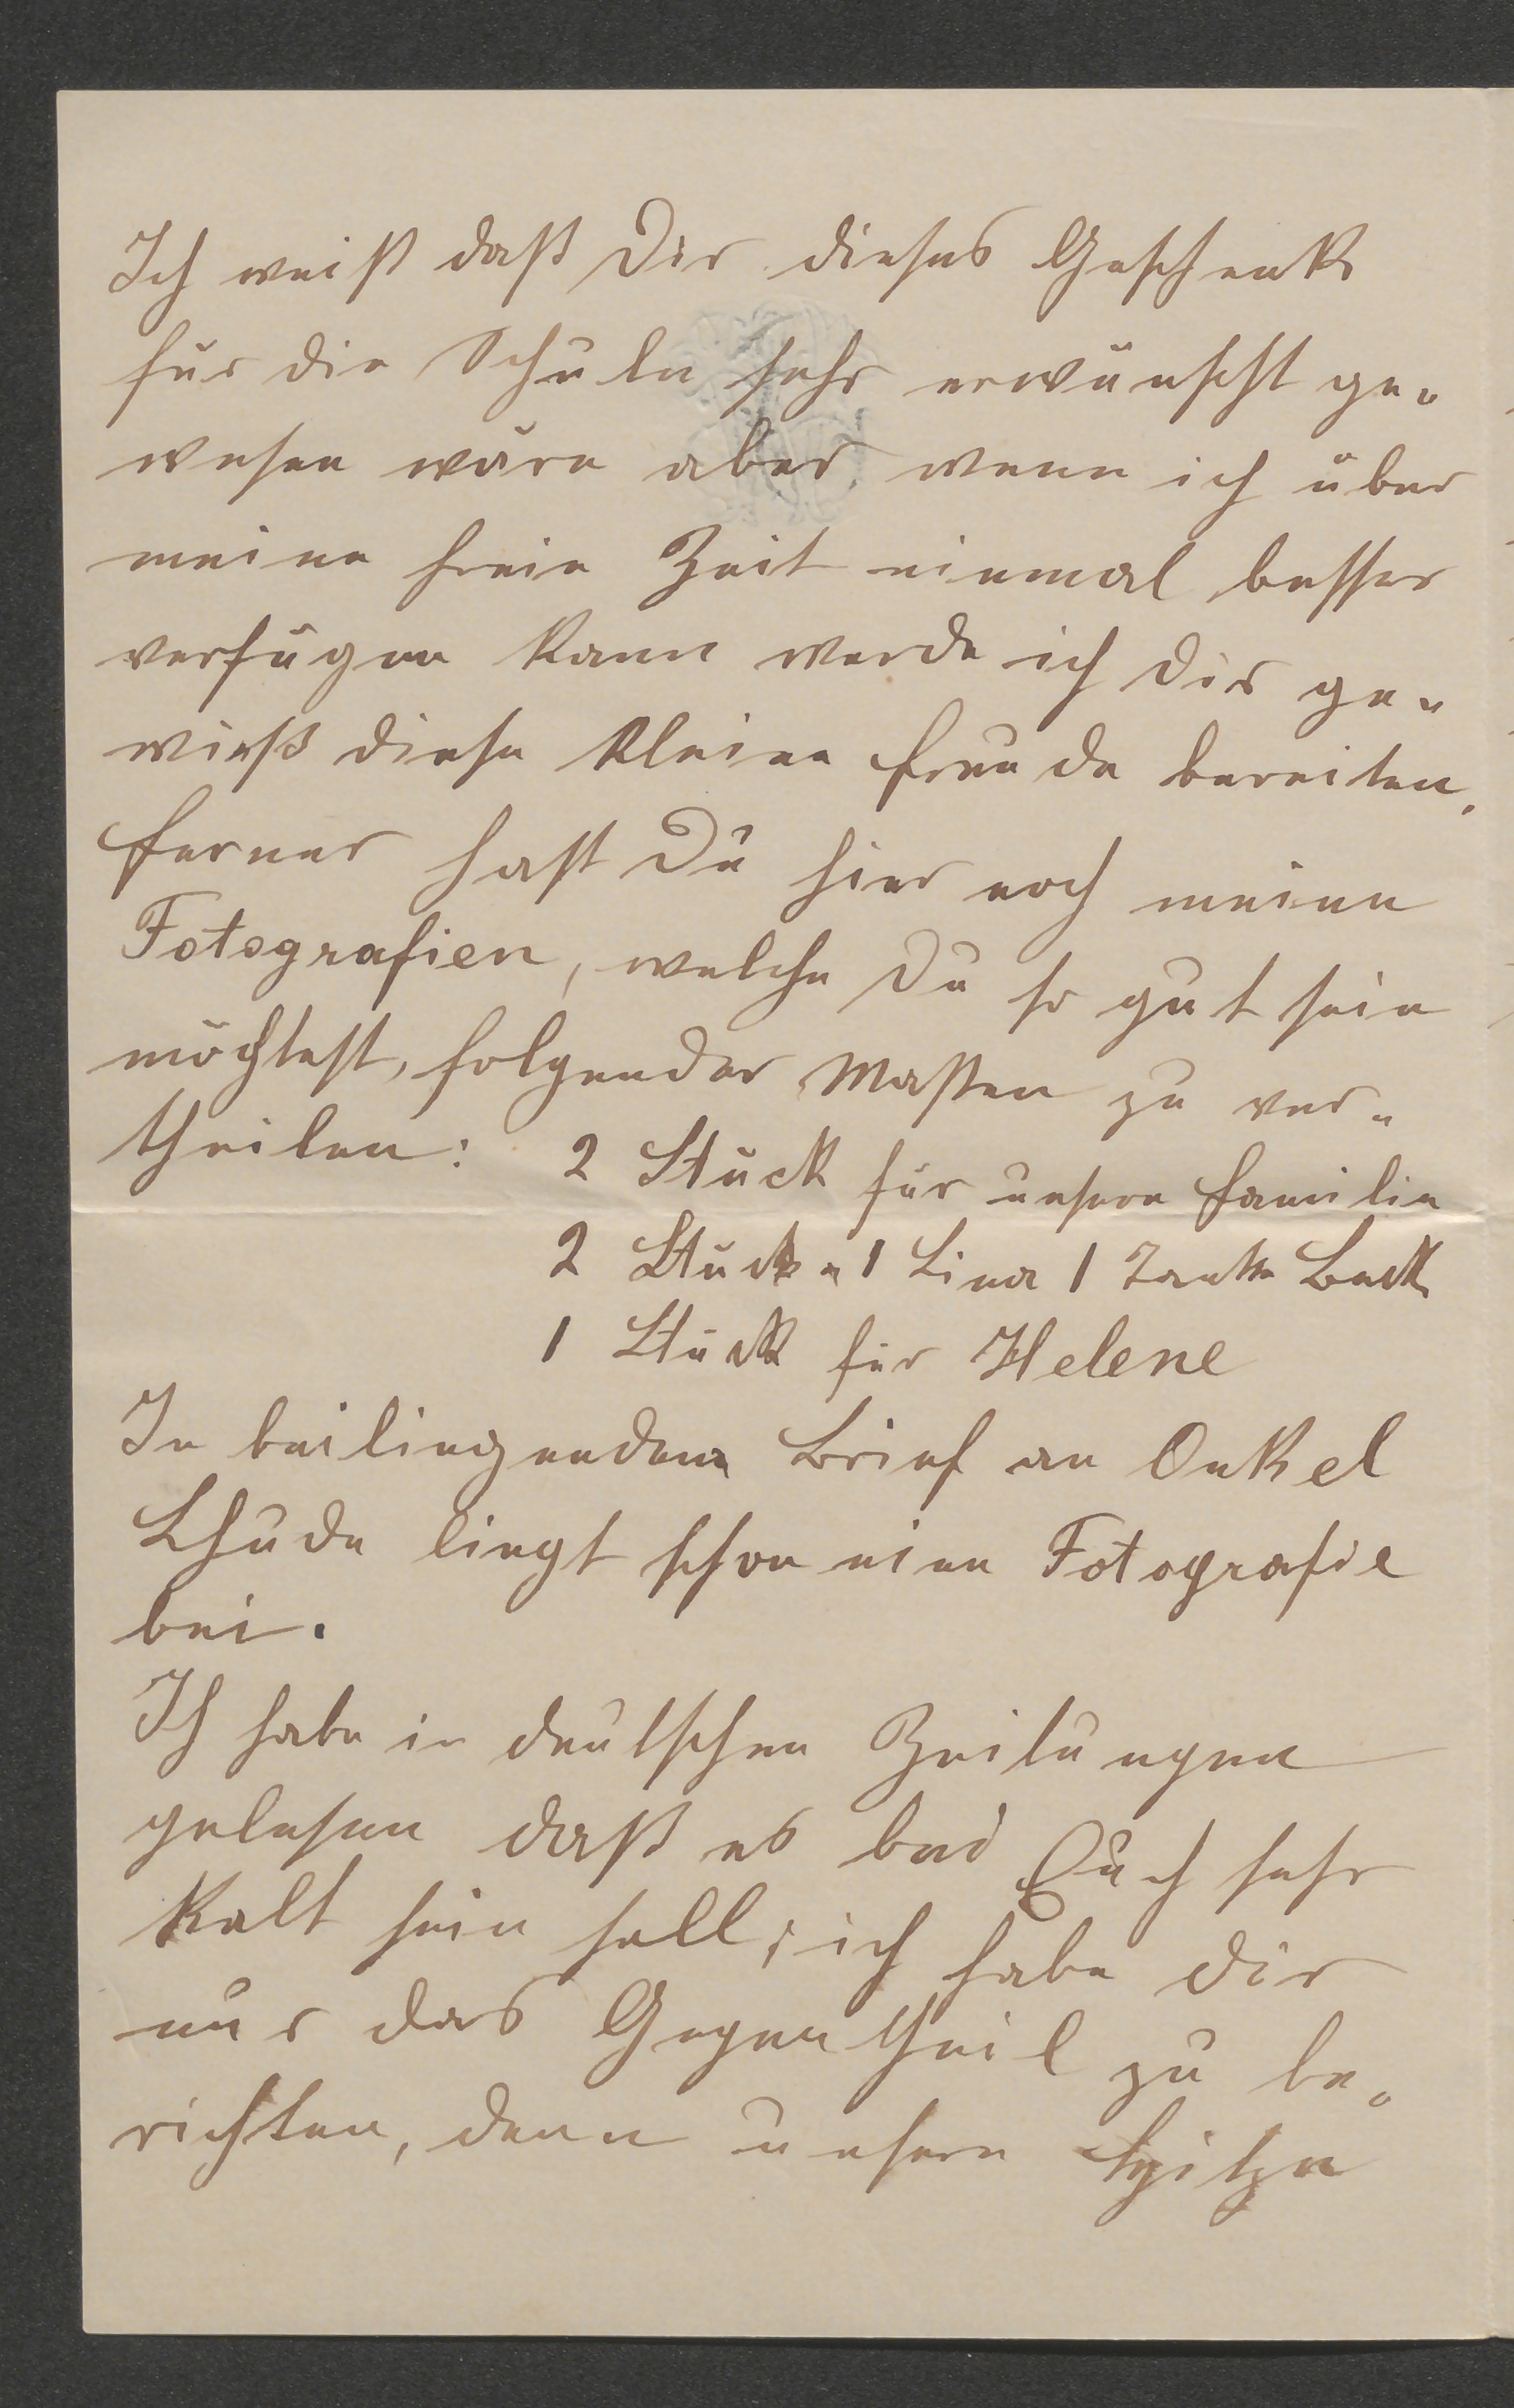 Ich weiß daß Dir dieses Geschenk
für die Schule sehr erwünscht ge-
wesen wäre aber, wenn ich über
meine freie Zeit einmal besser
verfügen kann werde ich Dir ge-
wieß diese kleine Freude bereiten,
Ferner hast Du hier noch meine
Fotografien, welche Du so gut sein
möchtest, folgender Massen zu ver-
theilen: 2 Stück für unsere Familie
2 Stück " 1 Lina 1 Tante Beck
1 Stück für Helene
In beiliegendem Brief an Onkel
liegt schon eine Fotografie
bei.
Ich habe in deutschen Zeitungen
gelesen daß es bei Euch sehr
kalt sein soll, ich habe Dir
nur das Gegentheil zu be-
richten, denn unsere Hitze